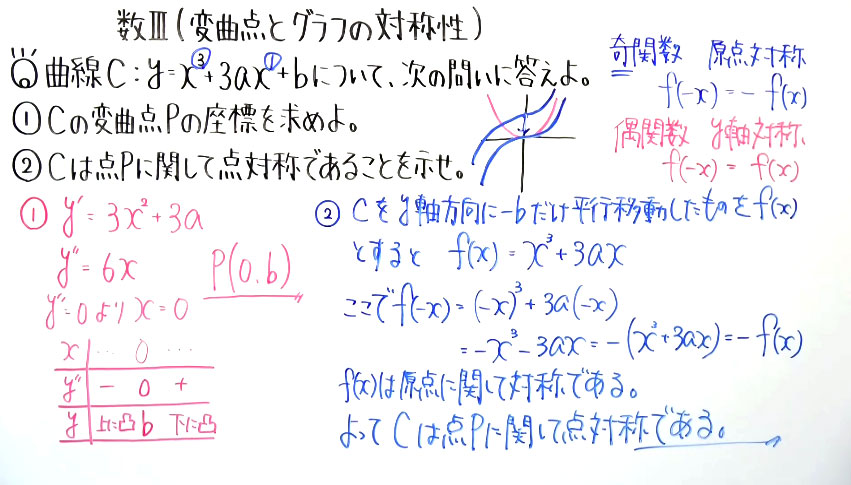 数Ⅲ(変曲点とグラフの対称性)
曲線C:y=x³+3ax¹+bについて、次の問いに答えよ。
①Cの変曲点Pの座標を求めよ。
②Cは点Pに関して点対称であることを示せ。
奇関数 原点対称
f(-x)=-f(x)
偶関数 y軸対称
f(-x)=f(x)
① y'=3x²+3a
y''=6x
y''=0より x=0
P(0,b)
x … 0 …
y'' - 0 +
y 上に凸 b 下に凸
② Cをy軸方向に-bだけ平行移動したものをf(x)
とすると f(x)=x³+3ax
ここでf(-x)=(-x)³+3a(-x)
=-x³-3ax=-(x³+3ax)=-f(x)
f(x)は原点に関して対称である。
よってCは点Pに関して点対称である。